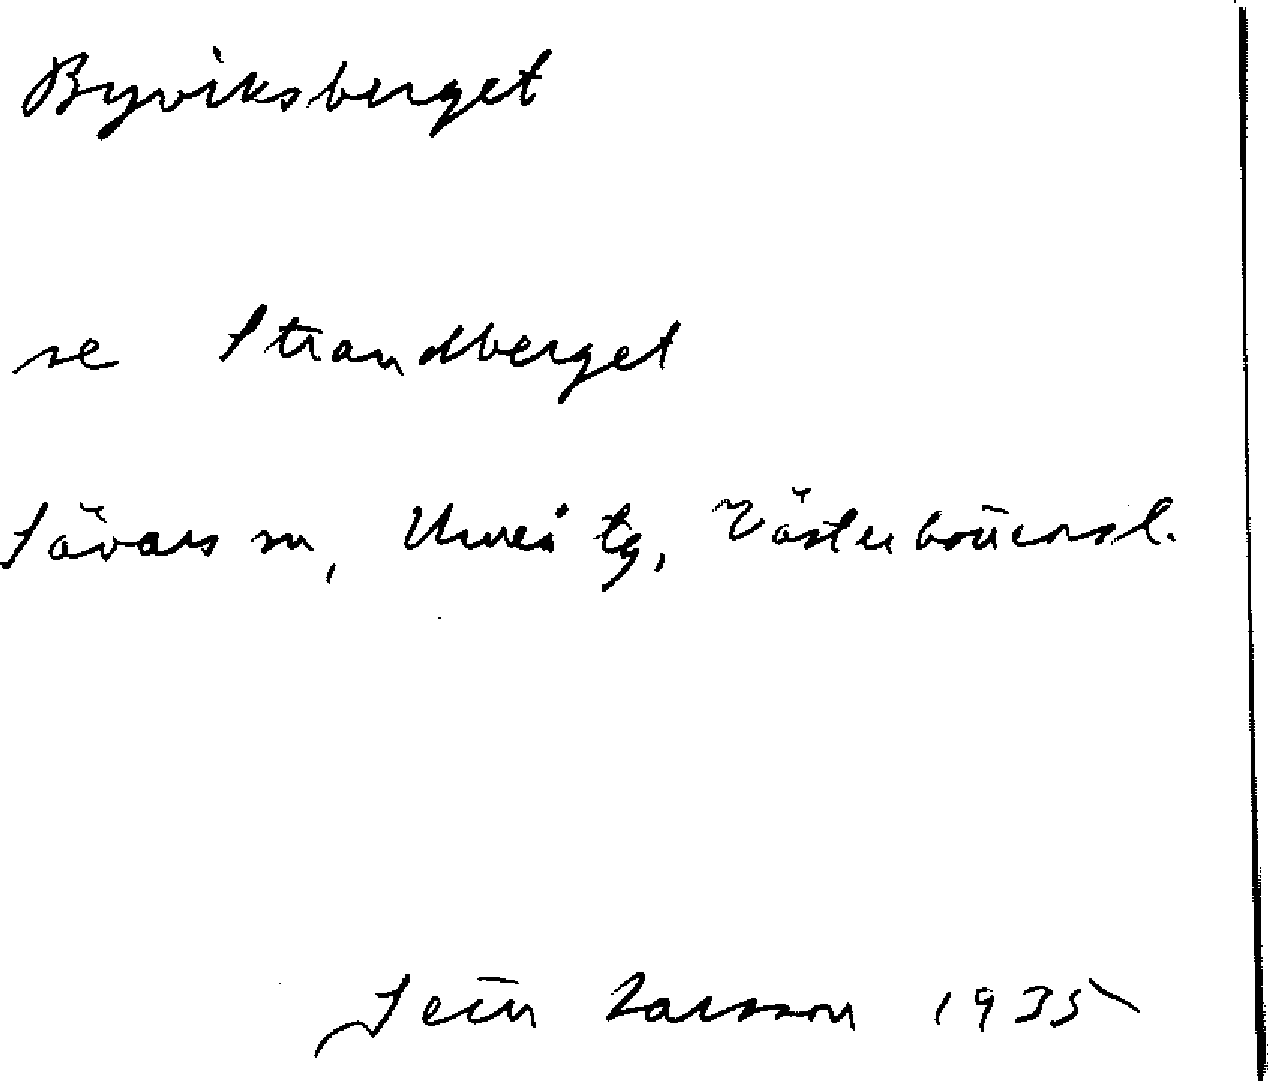 Byviksberget
se Strandberget
Sävars sn, Umeå tg, Västerbottensl.
Sten Larsson 1935